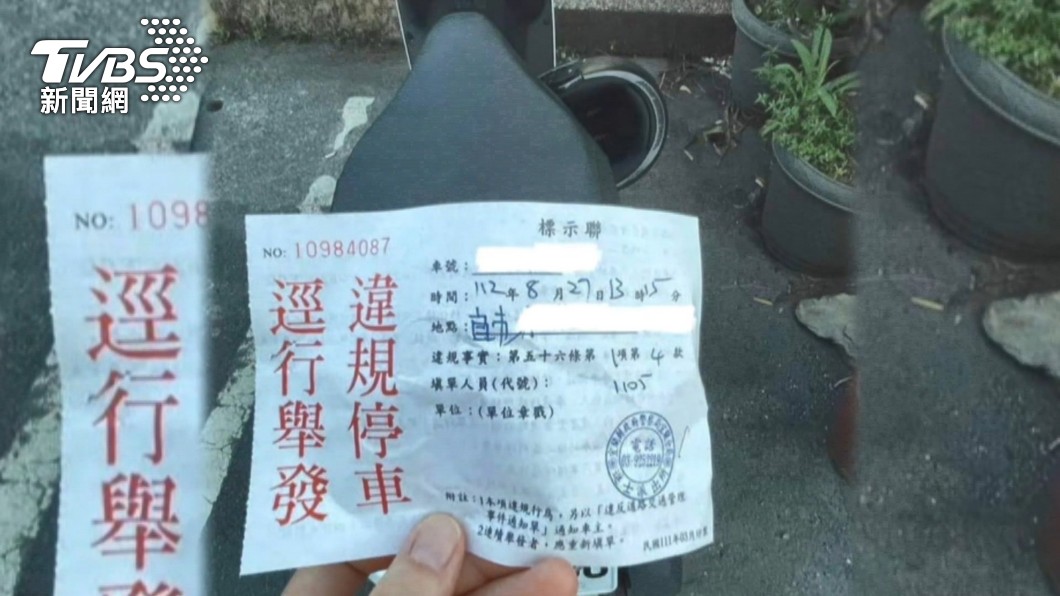 TVBS
新聞網
NO: 1098
逕行舉發
標示聯
NO: 10984087
違規停車
逕行舉發
車號：
時間：112年8月27日13時15分
地點：
違規事實：第五十六條第1項第4款
填單人員(代號)：1105
單位：(單位章戳)
電話
附註：1本項違規行為，另以「違反道路交通管理
事件通知單」通知車主。
2連續舉發者，應重新填單。
民國111年03月印製